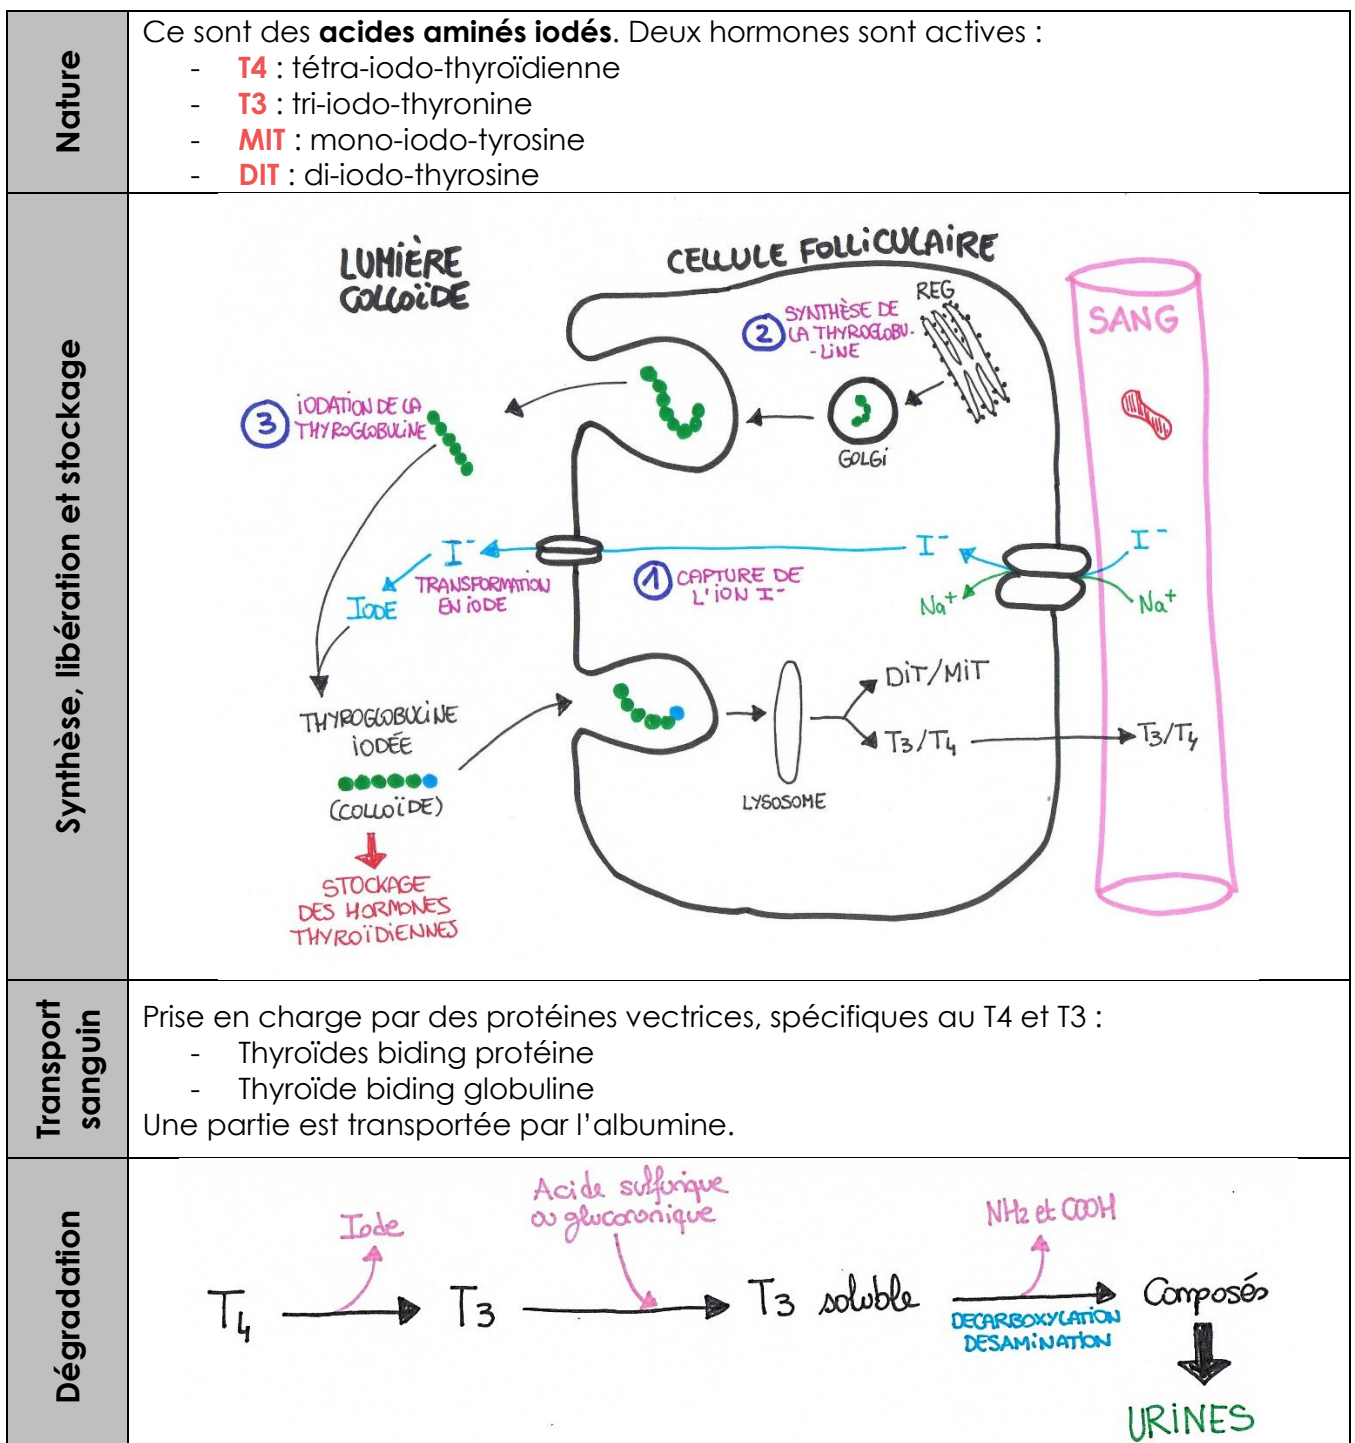 Nature
Ce sont des acides aminés iodés. Deux hormones sont actives :
- T4 : tétra-iodo-thyroïdienne
- T3 : tri-iodo-thyronine
- MIT : mono-iodo-tyrosine
- DIT : di-iodo-thyrosine
Synthèse, libération et stockage
LUMIÈRE
COLLOÏDE
CELLULE FOLLICULAIRE
REG
SANG
2 SYNTHÈSE DE
LA THYROGLOBU-
-LINE
GOLGI
3 IODATION DE LA
THYROGLOBULINE
I⁻
TRANSFORMATION
EN IODE
IODE
1 CAPTURE DE
L'ION I⁻
I⁻
Na⁺
I⁻
Na⁺
THYROGLOBULINE
IODÉE
(COLLOÏDE)
STOCKAGE
DES HORMONES
THYROÏDIENNES
LYSOSOME
DiT/MiT
T3/T4
T3/T4
Transport
sanguin
Prise en charge par des protéines vectrices, spécifiques au T4 et T3 :
- Thyroïdes biding protéine
- Thyroïde biding globuline
Une partie est transportée par l'albumine.
Dégradation
Iode
Acide sulfurique
ou glucoronique
NH2 et COOH
T4
T3
T3 soluble
DECARBOXYLATION
DESAMINATION
Composés
URINES